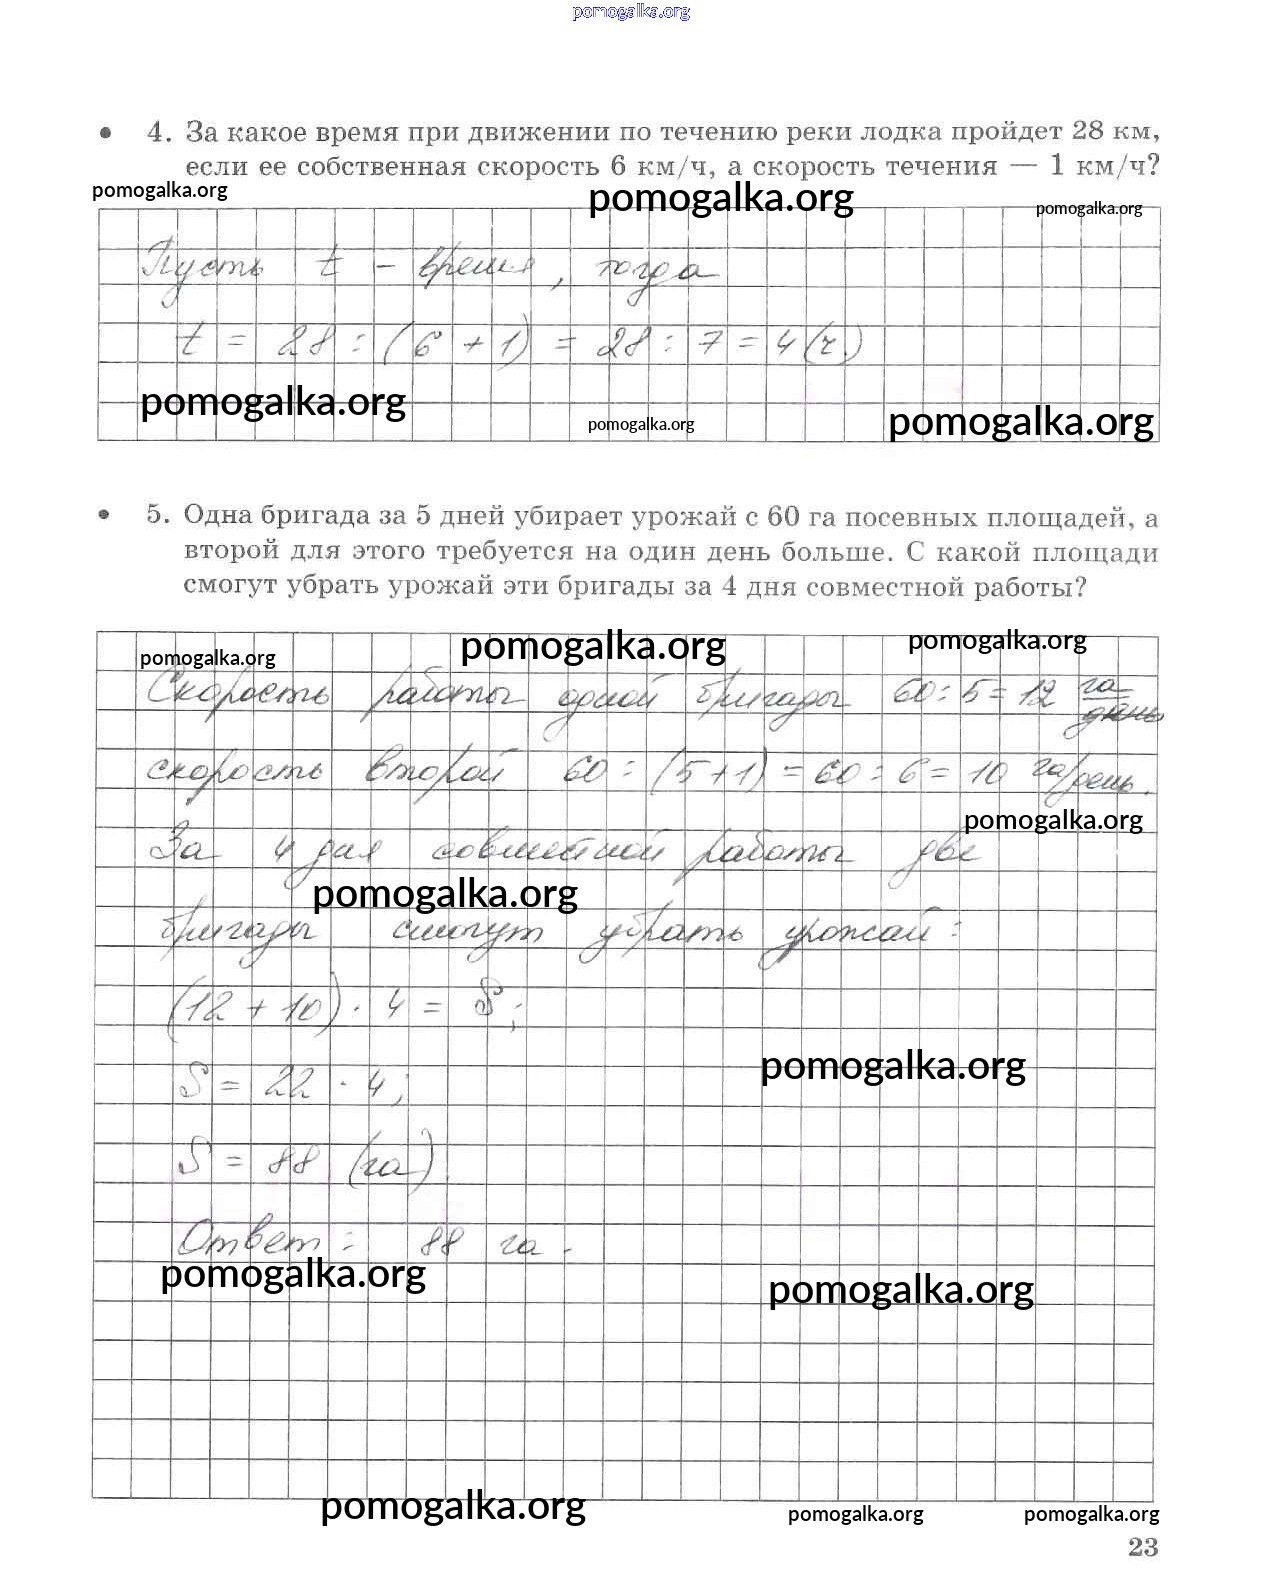 pomogalka.org
• 4. За какое время при движении по течению реки лодка пройдет 28 км,
если ее собственная скорость 6 км/ч, а скорость течения — 1 км/ч?
pomogalka.org pomogalka.org pomogalka.org
Пусть t - время, тогда
t = 28 : (6 + 1) = 28 : 7 = 4 (ч.)
pomogalka.org pomogalka.org pomogalka.org
• 5. Одна бригада за 5 дней убирает урожай с 60 га посевных площадей, а
второй для этого требуется на один день больше. С какой площади
смогут убрать урожай эти бригады за 4 дня совместной работы?
pomogalka.org pomogalka.org pomogalka.org
Скорость работы одной бригады 60 : 5 = 12 га/день
скорость второй 60 : (5+1) = 60 : 6 = 10 га/день.
pomogalka.org
За 4 дня совместной работы две
pomogalka.org
бригады смогут убрать урожай:
(12 + 10) · 4 = S;
pomogalka.org
S = 22 · 4;
S = 88 (га)
Ответ: 88 га.
pomogalka.org pomogalka.org
pomogalka.org pomogalka.org pomogalka.org
23